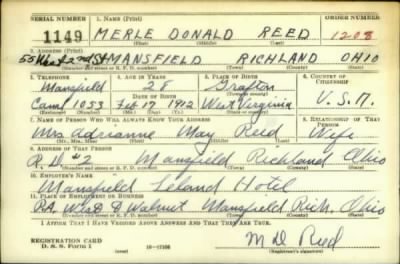 SERIAL NUMBER 1. NAME (Print) ORDER NUMBER
1149 MERLE DONALD REED 1208
(First) (Middle) (Last)
2. ADDRESS (Print)
2nd St MANSFIELD RICHLAND OHIO
(Number and street or R. F. D. number) (Town) (County) (State)
3. TELEPHONE 4. AGE IN YEARS 5. PLACE OF BIRTH 6. COUNTRY OF CITIZENSHIP
Mansfield 28 Grafton
Canal 1053 Feb 17 1912 West Virginia U.S.A.
7. NAME OF PERSON WHO WILL ALWAYS KNOW YOUR ADDRESS 8. RELATIONSHIP OF THAT PERSON
Mrs Adrianne May Reed Wife
(Mr., Mrs., Miss) (First) (Middle) (Last)
9. ADDRESS OF THAT PERSON
R.D. #2 Mansfield Richland Ohio
(Number and street or R. F. D. number) (Town) (County) (State)
10. EMPLOYER'S NAME
Mansfield Leland Hotel
11. PLACE OF EMPLOYMENT OR BUSINESS
Walnut Mansfield Rich. Ohio
(Number and street or R. F. D. number) (Town) (County) (State)
I AFFIRM THAT I HAVE VERIFIED ABOVE ANSWERS AND THAT THEY ARE TRUE.
REGISTRATION CARD
D. S. S. FORM 1 16—17105 M D Reed
(Registrant's signature)